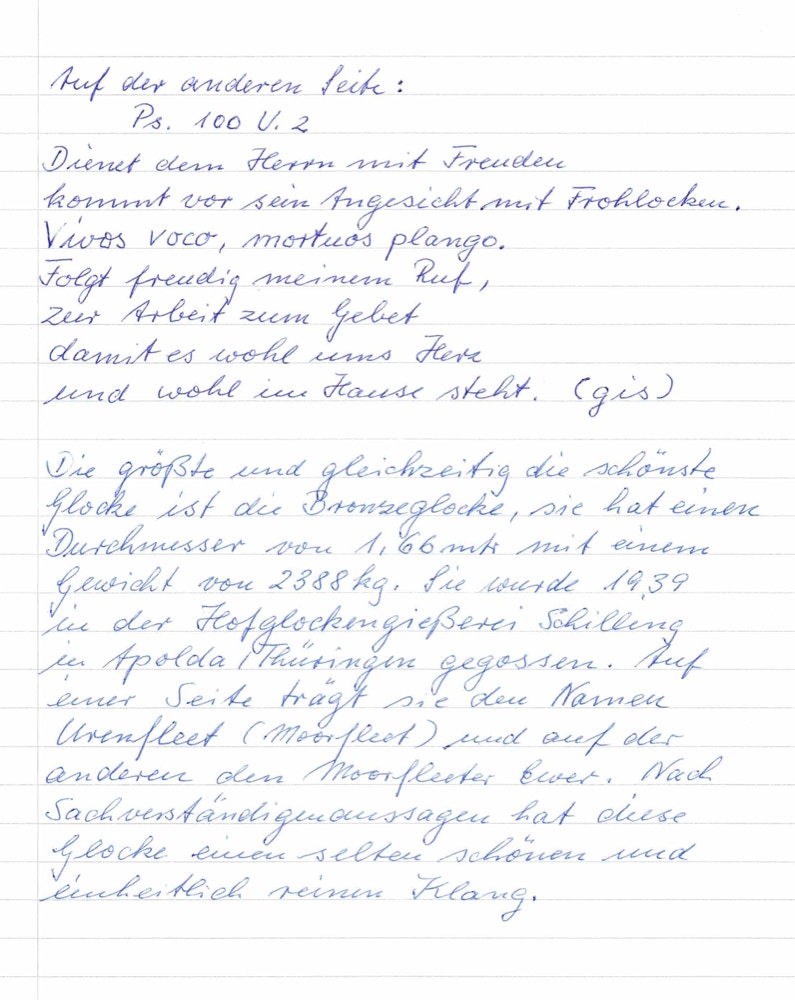 Auf der anderen Seite:
Ps. 100 V. 2
Dienet dem Herrn mit Freuden
kommt vor sein Angesicht mit Frohlocken.
Vivos voco, mortuos plango.
Folgt freudig meinem Ruf,
zur Arbeit zum Gebet
damit es wohl ums Herz
und wohl im Hause steht. (gis)
Die größte und gleichzeitig die schönste
Glocke ist die Bronzeglocke, sie hat einen
Durchmesser von 1,66 mtr mit einem
Gewicht von 2388 kg. Sie wurde 1939
in der Hofglockengießerei Schilling
in Apolda/Thüringen gegossen. Auf
einer Seite trägt sie den Namen
Urenfleet (Moorfleet) und auf der
anderen den Moorfleeter Ewer. Nach
Sachverständigenaussagen hat diese
Glocke einen selten schönen und
einheitlich reinen Klang.